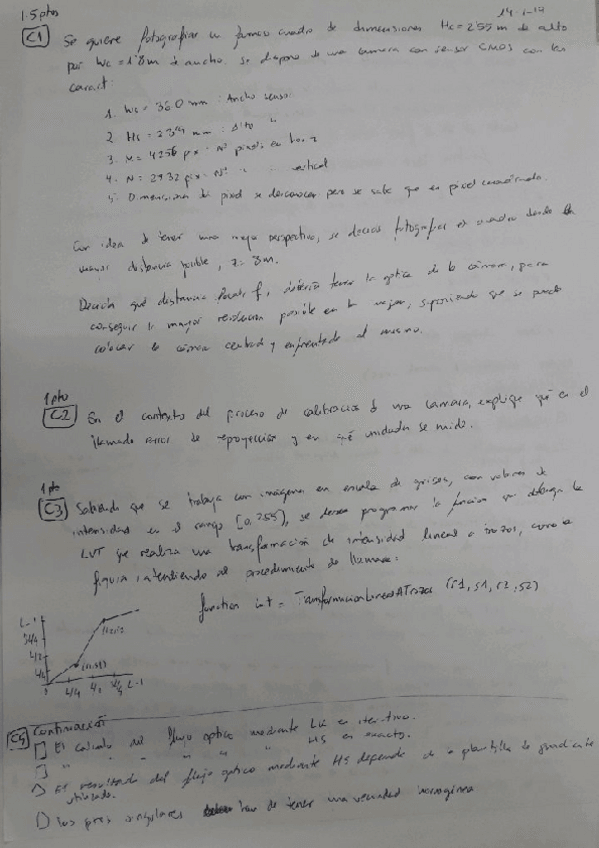 1.5ptos
14-1-17
C1 Se quiere fotografiar un famoso cuadro de dimensiones Hc = 2.55 m de alto
por Wc = 1.8 m de ancho. se dispone de una camara con sensor CMOS con las
caract:
1. Wc = 36.0 mm : Ancho sensor
2. Hs = mm : Alto "
3. M = 4256 pix : Nº pixels en horiz
4. N = 2832 pix : Nº " " vertical
5. Dimensiones del pixel se desconocen pero se sabe que es pixel cuadrado.
Con idea de tener una mejor perspectiva, se desea fotografiar el cuadro desde la
menor distancia posible, z = 3m.
Decidir qué distancia focal f, debería tener la optica de la cámara, para
conseguir la mayor resolución posible en la imagen, suponiendo que se puede
colocar la cámara centrada y enfrentada al mismo.
1pto
C2 En el contexto del proceso de calibración de una camara, explique qué es el
llamado error de reproyección y en qué unidades se mide.
1pto
C3 Sabiendo que se trabaja con imágenes en escala de grises, con valores de
intensidad en el rango [0,255], se desea programar la función que obtenga la
LUT que realiza una transformación de intensidad lineal a trozos, como la
figura atendiendo al procedimiento de llamada:
function int = TransformacionLinealATrozos (r1, s1, r2, s2)
L-1
L/2
L/4
0 L/4 L/2 L-1
C4 Continuación
El calculo del flujo optico mediante LK es iterativo.
" " " " " HS es exacto.
El resultado del flujo optico mediante HS depende de la plantilla de gradiente
utilizada.
Los pixeles singulares han de tener una vecindad homogénea